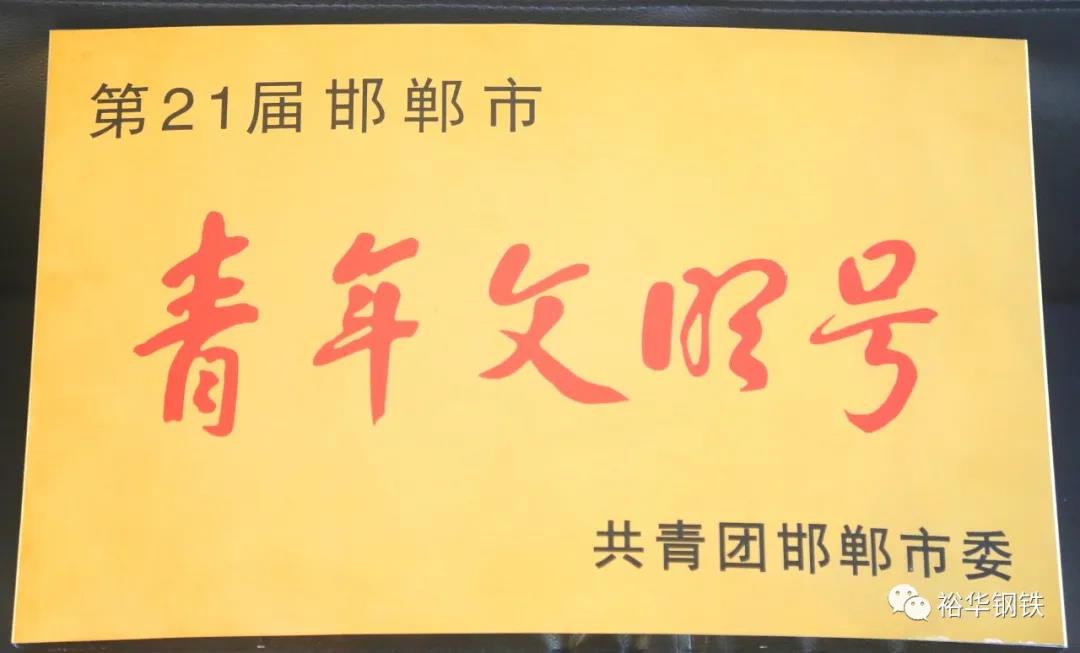 第21届邯郸市
青年文明号
共青团邯郸市委
裕华钢铁